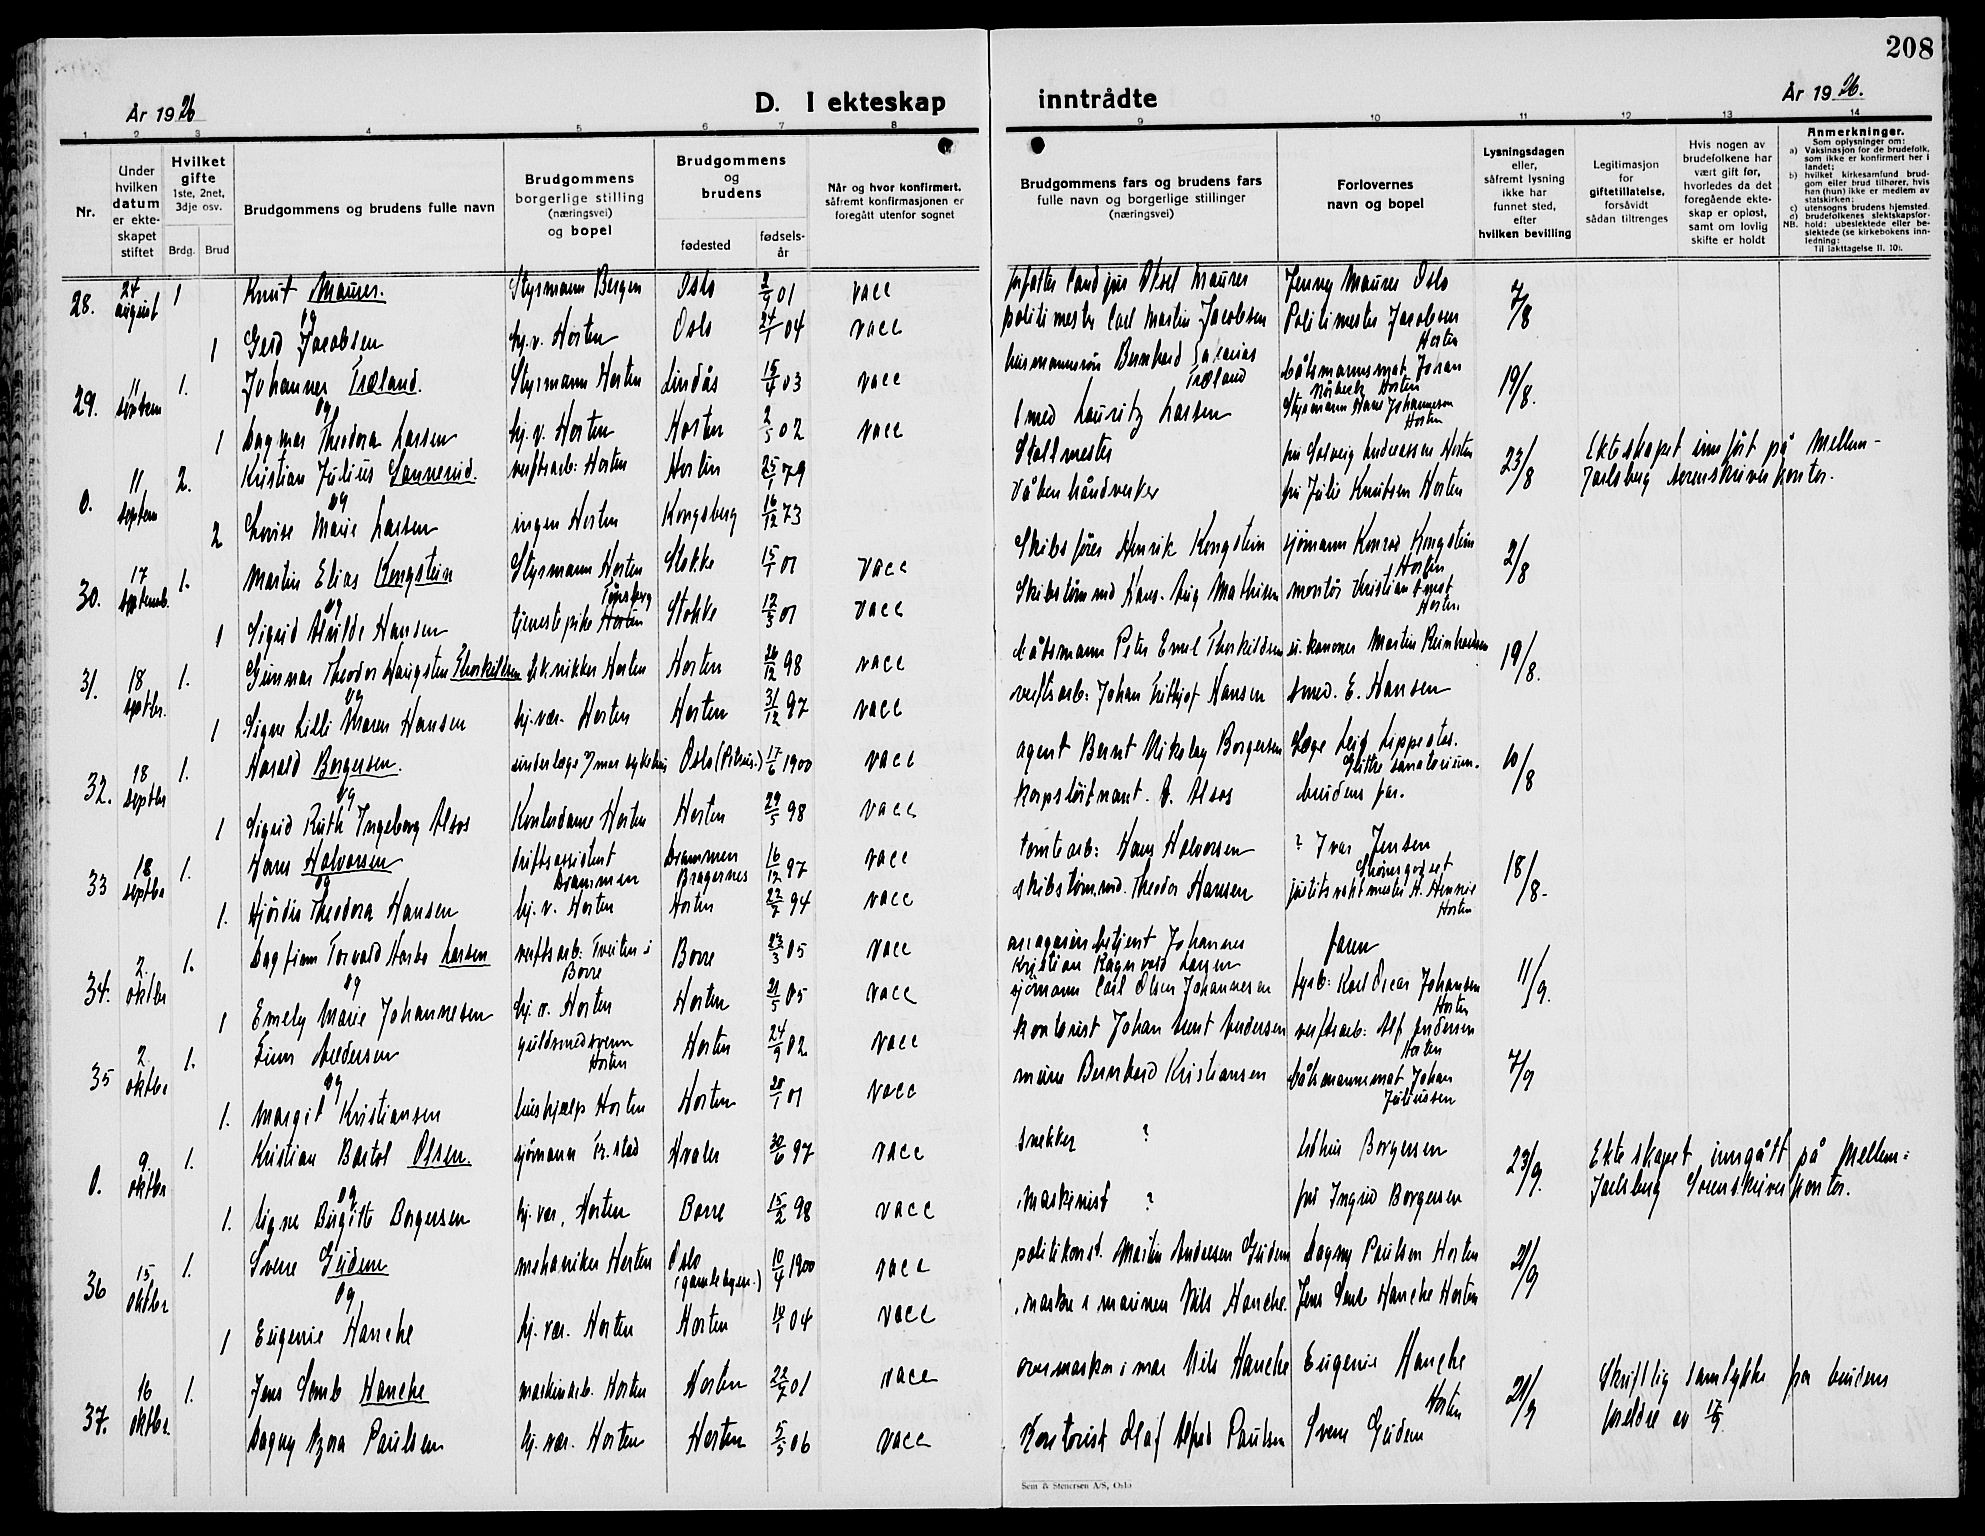 208
År 1926
D. I ekteskap inntrådte
År 1926.
1 2 3 4 5 6 7 8 9 10 11 12 13 14
Nr.
Under hvilken datum er ekteskapet stiftet
Hvilket gifte
1ste, 2net, 3dje osv.
Brdg. Brud
Brudgommens og brudens fulle navn
Brudgommens borgerlige stilling (næringsvei) og bopel
Brudgommens og brudens
fødested fødsels-år
Når og hvor konfirmert, såfremt konfirmasjonen er foregått utenfor sognet
Brudgommens fars og brudens fars fulle navn og borgerlige stillinger (næringsvei)
Forlovernes navn og bopel
Lysningsdagen eller, såfremt lysning ikke har funnet sted, efter hvilken bevilling
Legitimasjon for giftetillatelse, forsåvidt sådan tiltrenges
Hvis nogen av brudefolkene har vært gift før, hvorledes da det foregående ekteskap er opløst, samt om lovlig skifte er holdt
Anmerkninger.
Som oplysninger om:
a) Vaksinasjon for de brudefolk, som ikke er konfirmert her i landet;
b) hvilket kirkesamfund brudgom eller brud tilhører, hvis han (hun) ikke er medlem av statskirken;
c) utensogns brudens hjemsted.
d) brudefolkenes slektskapsforhold: ubeslektede eller beslektede (se kirkebokens innledning:
NB.
Til iakttagelse II. 10).
28. 24 august 1 Knut Maurer. Styrmann Bergen Oslo 2/9 01 vacc Axel Maurer Jenny Maurer Oslo 7/8
og
1 Gerd Jacobsen hj. v. Horten Oslo 24/1 04 vacc politimester Carl Martin Jacobsen Politimester Jacobsen Horten
29. 11 septem 1. Johannes Træland. Styrmann Horten Lindås 15/4 03 vacc Bernhard Sakarias Træland båtsmannsmat Johan Horten 19/8.
og
1 Dagmar Theodora Larsen hj. v. Horten Horten 2/5 02 vacc Smed Lauritz Larsen Styrmann Hans Johannesen Horten
0. 11 septem 2. Kristian Julius Sannerud. verftsarb: Horten Horten 25/1 79 Stallmester fru Solveig Andersen Horten 23/8 Ekteskapet innført på Mellem-
og
2 Lovise Marie Larsen ingen Horten Kongsberg 16/12 73 Våbenhåndverker fru Julie Knutsen Horten Jarlsberg sorenskriverkontor.
30. 17 septemb. 1. Martin Elias Kongstein Styrmann Horten Stokke 15/1 01 vacc Skibsfører Henrik Kongstein sjømann Konrad Kongstein Horten 2/8
og
1 Sigrid Alvilde Hansen tjenestepike Tønsberg Stokke 12/3 01 vacc Skibstømmd Hans. Aug Mathisen montør Kristian Horten.
31. 18 septbr. 1. Gunnar Theodor Haugsten Thorkildsen teknikker Horten Horten 26/12 98 vacc båtsmann Peter Emil Thorkildsen Martin Reinholdsen 19/8.
og
1 Signe Lilli Maren Hansen hj. vær. Horten Horten 31/12 97 vacc verftsarb: Johan Frithjof Hansen smed. E. Hansen
32. 18 septbr 1. Harald Borgersen. underlæge Oslo 17/6 1900 vacc agent Bernt Nikolay Borgersen Læge Leif Lippestad. Glittre sanatorium. 10/8
og
1 Sigrid Ruth Ingeborg Alsos Kontordame Horten Horten 29/5 98 vacc korpsløitnant. O. Alsos brudens far.
33 18 septbr 1. Hans Halvorsen driftsassistent Drammen Drammen Bragernes 16/12 97 vacc tomtearb: Hans Halvorsen ? Ivar Jensen 18/8-
og
1. Hjørdis Theodora Hansen hj. v. Horten Horten 22/7 94 vacc Skibstømmd. Theodor Hansen Horten
34. 2. oktbr 1. Dagfinn Torvald Larsen verftsarb. Tveiten i Borre Borre 23/3 05 vacc magasinbetjent Johannes Kristian Ragnvald Larsen faren 11/9.
og
1 Emely Marie Johannesen hj. v. Horten Horten 21/5 05 vacc sjømann Carl Olsen Johannesen fyrb: Karl Oscar Johansen Horten
35 2. oktbr 1. Finn Andersen guldsmedsvenn Horten Horten 24/9 02 vacc kontorist Johan Andersen verftsarb: Alf Andersen Horten 7/9
og
1. Margit Kristiansen hushjælp Horten Horten 28/1 01 vacc murer Bernhard Kristiansen båtsmannsmat Johan Juliussen
0. 9. oktbr 1. Kristian Bartol Olsen. sjømann Fr.stad Hvaler 30/6 97 vacc snekker ? Borgersen 23/9. Ekteskapet inngått på Mellem-
og
1. Signe Birgitte Borgersen hj. vær, Horten Borre 15/2 98 vacc maskinist ? frk Ingrid Borgersen Jarlsberg Sorenskriverkontor.
36 15. oktbr 1. Sverre Gudem mekaniker Horten Oslo (gamlebyen.) 10/4 1900 vacc politikonst. Martin Andersen Gudem Dagny Paulsen Horten 21/9
og
1 Eugenie Hanche hj. vær. Horten Horten 10/1 04 vacc maskn i marinen Nils Hanche. Jens Semb Hanche Horten
37. 16 oktbr. 1. Jens Semb Hanche maskinarb. Horten Horten 22/7 01 vacc overmaskn i mar Nils Hanche Eugenie Hanche Horten 21/9 Skriftlig samtykke fra brudens
Dagny Paulsen hj. vær. Horten Horten 5/5 06 vacc Kontorist Olaf Alfred Paulsen Sverre Gudem foreldre av 17/9.
Sem & Stenersen A/S, Oslo